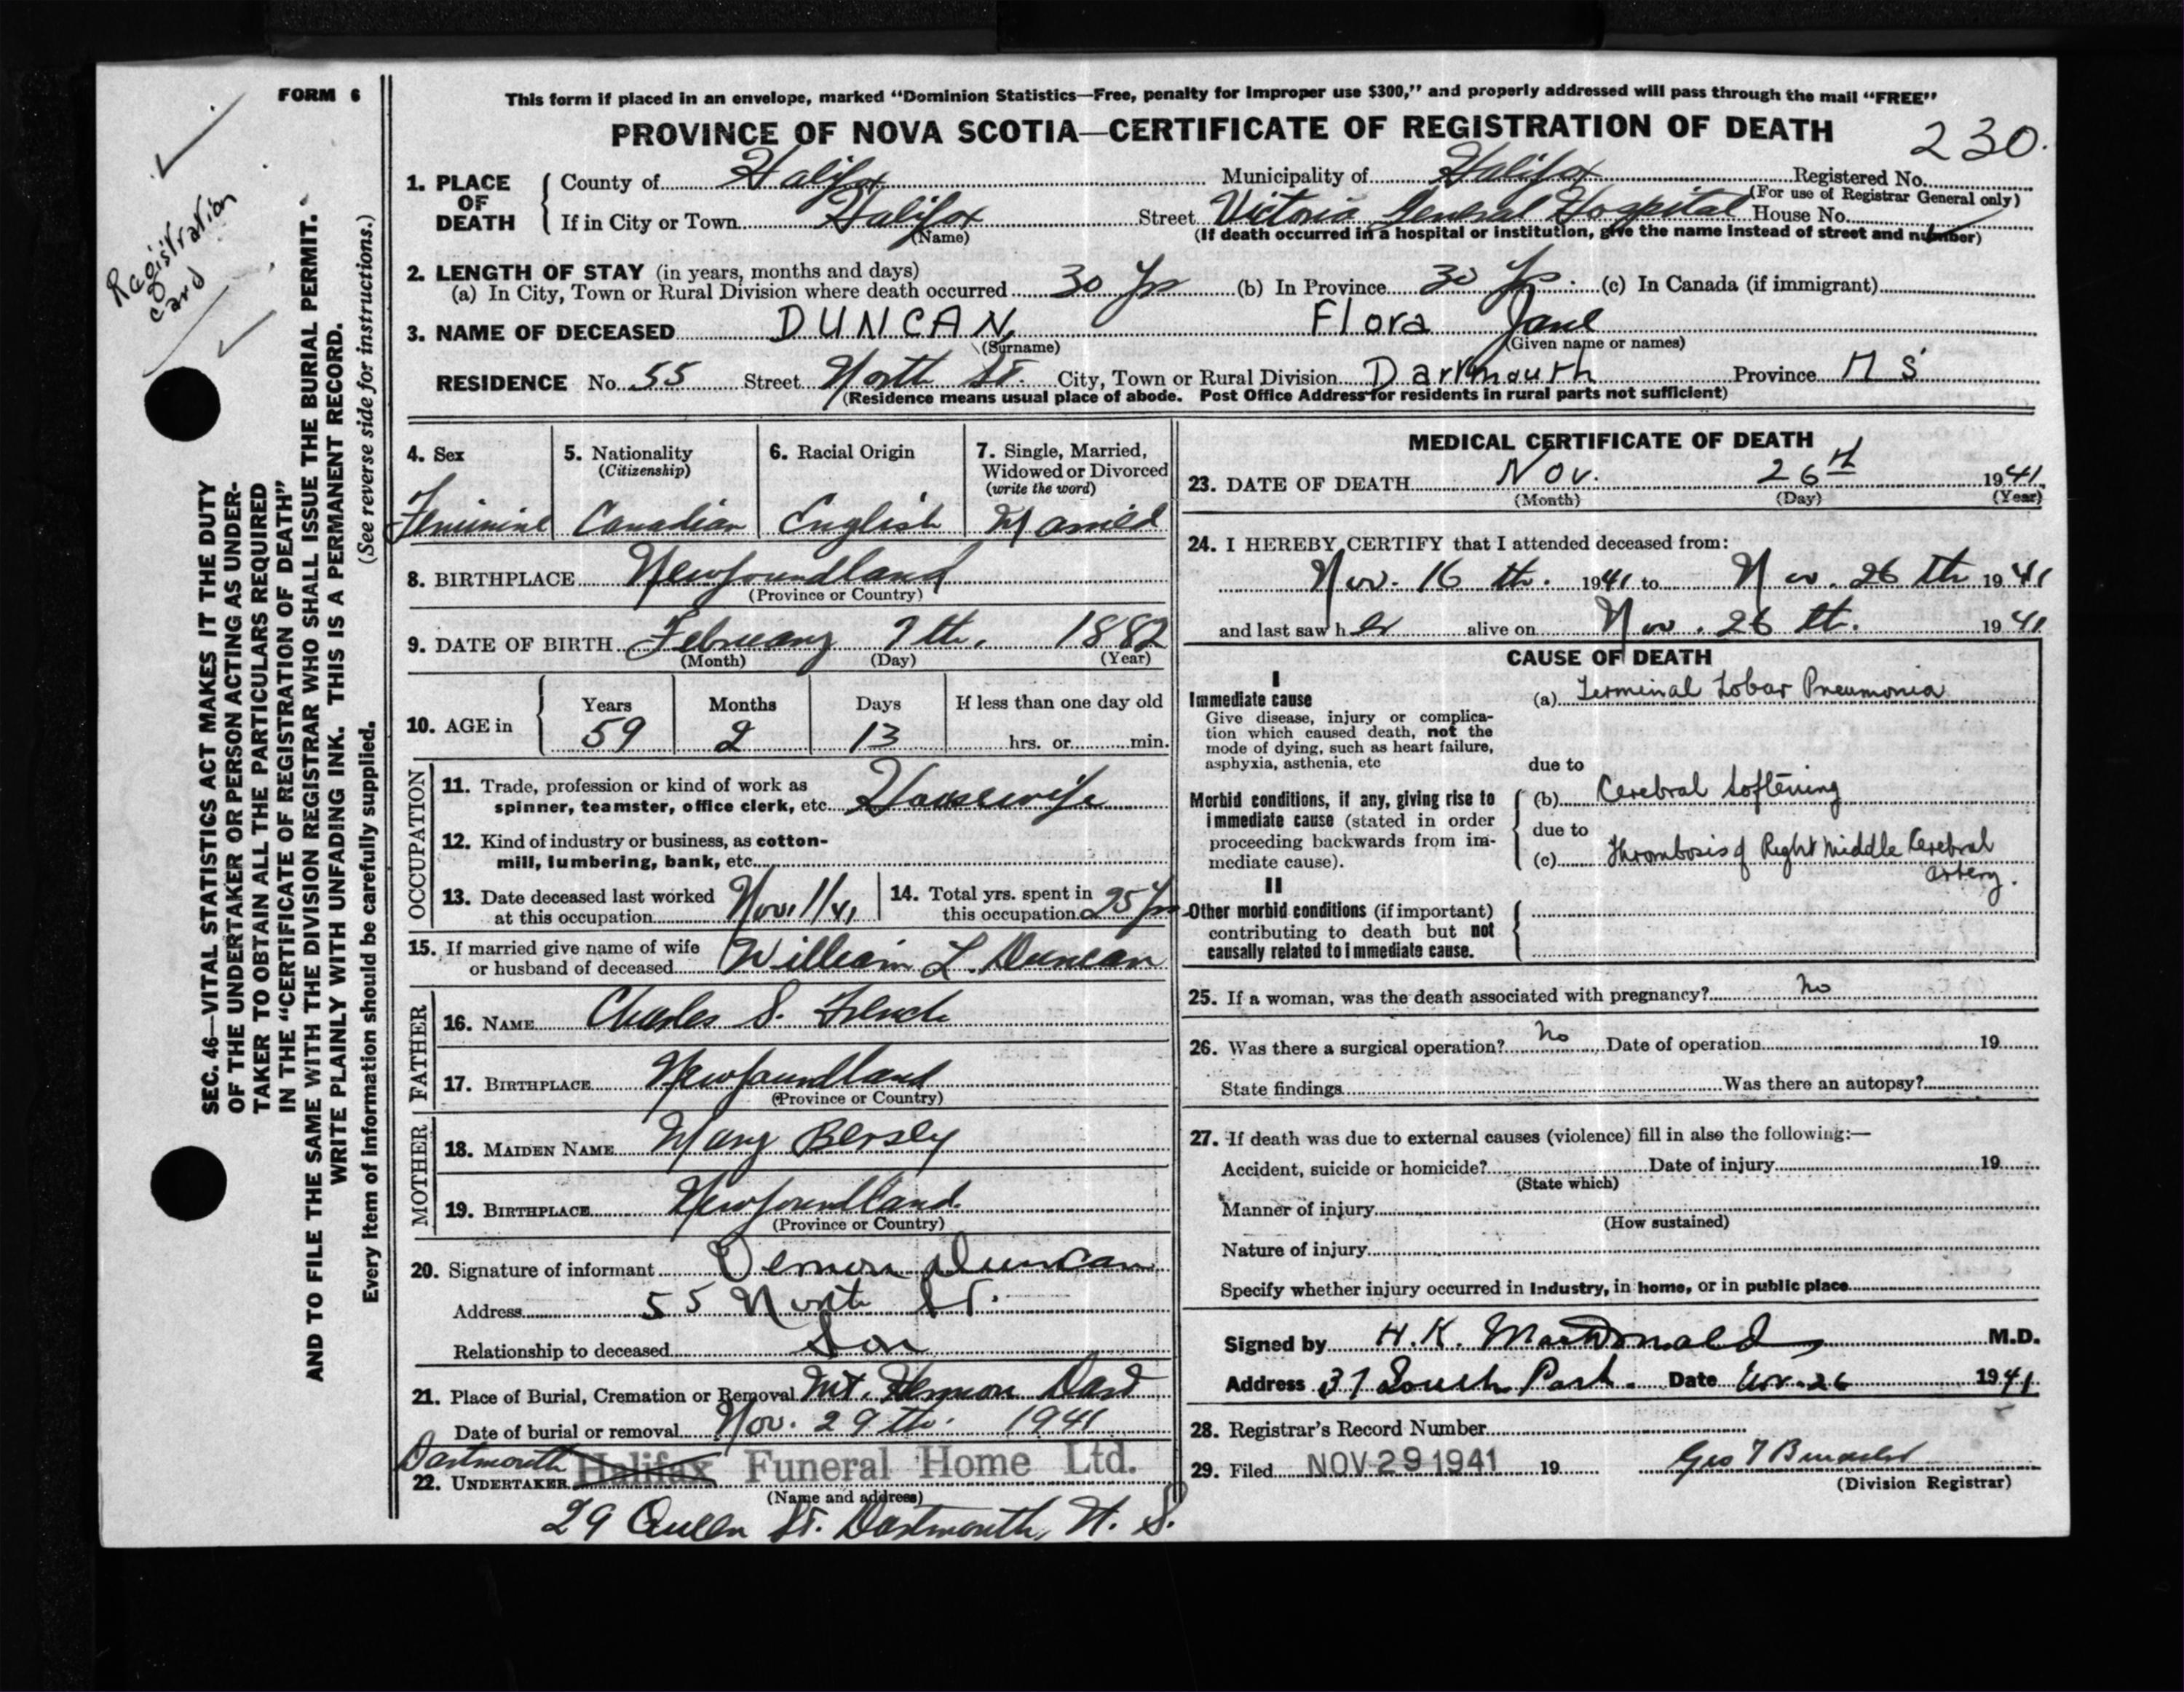 FORM 6
This form if placed in an envelope, marked “Dominion Statistics—Free, penalty for improper use $300,” and properly addressed will pass through the mail “FREE”
PROVINCE OF NOVA SCOTIA—CERTIFICATE OF REGISTRATION OF DEATH
230.
Registration
card
SEC. 46—VITAL STATISTICS ACT MAKES IT THE DUTY
OF THE UNDERTAKER OR PERSON ACTING AS UNDER-
TAKER TO OBTAIN ALL THE PARTICULARS REQUIRED
IN THE “CERTIFICATE OF REGISTRATION OF DEATH”
AND TO FILE THE SAME WITH THE DIVISION REGISTRAR WHO SHALL ISSUE THE BURIAL PERMIT.
WRITE PLAINLY WITH UNFADING INK. THIS IS A PERMANENT RECORD.
Every item of information should be carefully supplied. (See reverse side for instructions.)
1. PLACE OF DEATH
County of Halifax Municipality of Halifax Registered No.
(For use of Registrar General only)
If in City or Town Halifax Street Victoria General Hospital House No.
(Name) (If death occurred in a hospital or institution, give the name instead of street and number)
2. LENGTH OF STAY (in years, months and days)
(a) In City, Town or Rural Division where death occurred 30 Yrs (b) In Province 30 Yrs. (c) In Canada (if immigrant)
3. NAME OF DECEASED DUNCAN, Flora Jane
(Surname) (Given name or names)
RESIDENCE No. 55 Street North St. City, Town or Rural Division Dartmouth Province N S
(Residence means usual place of abode. Post Office Address for residents in rural parts not sufficient)
4. Sex 5. Nationality (Citizenship) 6. Racial Origin 7. Single, Married, Widowed or Divorced (write the word)
Feminine Canadian English Married
8. BIRTHPLACE Newfoundland
(Province or Country)
9. DATE OF BIRTH February 7th, 1882
(Month) (Day) (Year)
10. AGE in Years Months Days If less than one day old
59 2 13 hrs. or min.
OCCUPATION
11. Trade, profession or kind of work as
spinner, teamster, office clerk, etc. Housewife
12. Kind of industry or business, as cotton-
mill, lumbering, bank, etc.
13. Date deceased last worked
at this occupation Nov. 1/41
14. Total yrs. spent in
this occupation 25 Yrs
15. If married give name of wife
or husband of deceased William L. Duncan
FATHER
16. NAME Charles S. French
17. BIRTHPLACE Newfoundland
(Province or Country)
MOTHER
18. MAIDEN NAME Mary Bersly
19. BIRTHPLACE Newfoundland.
(Province or Country)
20. Signature of informant Vernon Duncan
Address 55 North St.
Relationship to deceased Son
21. Place of Burial, Cremation or Removal Mt. Hermon Dart
Date of burial or removal Nov. 29th. 1941
Dartmouth
22. UNDERTAKER Halifax Funeral Home Ltd.
(Name and address)
29 Queen St. Dartmouth, N. S.
MEDICAL CERTIFICATE OF DEATH
23. DATE OF DEATH Nov. 26th 1941
(Month) (Day) (Year)
24. I HEREBY CERTIFY that I attended deceased from:
Nov. 16 th. 1941 to Nov. 26 th 1941
and last saw her alive on Nov. 26 th. 1941
CAUSE OF DEATH
I
Immediate cause
Give disease, injury or complica-
tion which caused death, not the
mode of dying, such as heart failure,
asphyxia, asthenia, etc
(a) Terminal Lobar Pneumonia
due to
Morbid conditions, if any, giving rise to
immediate cause (stated in order
proceeding backwards from im-
mediate cause).
(b) Cerebral Softening
due to
(c) Thrombosis of Right Middle Cerebral
artery.
II
Other morbid conditions (if important)
contributing to death but not
causally related to immediate cause.
25. If a woman, was the death associated with pregnancy? No
26. Was there a surgical operation? No Date of operation 19
State findings Was there an autopsy?
27. If death was due to external causes (violence) fill in also the following:—
Accident, suicide or homicide? Date of injury 19
(State which)
Manner of injury
(How sustained)
Nature of injury
Specify whether injury occurred in industry, in home, or in public place
Signed by H. K. MacDonald M.D.
Address 37 South Park. Date Nov. 26 1941
28. Registrar's Record Number
29. Filed NOV 29 1941 19
(Division Registrar)